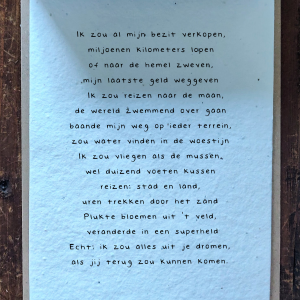 Ik zou al mijn bezit verkopen,
miljoenen kilometers lopen
of naar de hemel zweven,
mijn laatste geld weggeven
Ik zou reizen naar de maan,
de wereld zwemmend over gaan
baande mijn weg op ieder terrein,
zou water vinden in de woestijn
Ik zou vliegen als de mussen,
wel duizend voeten kussen
reizen: stad en land,
uren trekken door het zand
Plukte bloemen uit 't veld,
veranderde in een superheld
Echt: ik zou alles uit je dromen,
als jij terug zou kunnen komen.